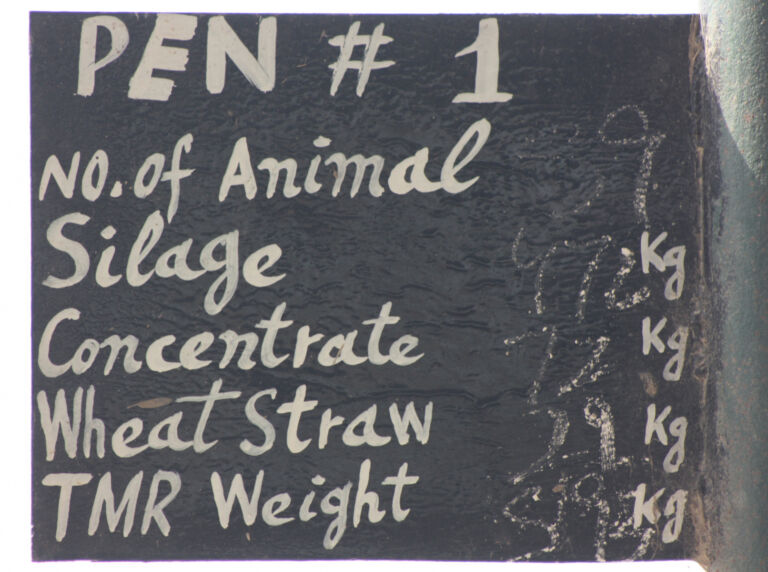 PEN # 1
No. of Animal 9
Silage Kg
Concentrate 72 Kg
Wheat Straw 29 Kg
TMR Weight Kg